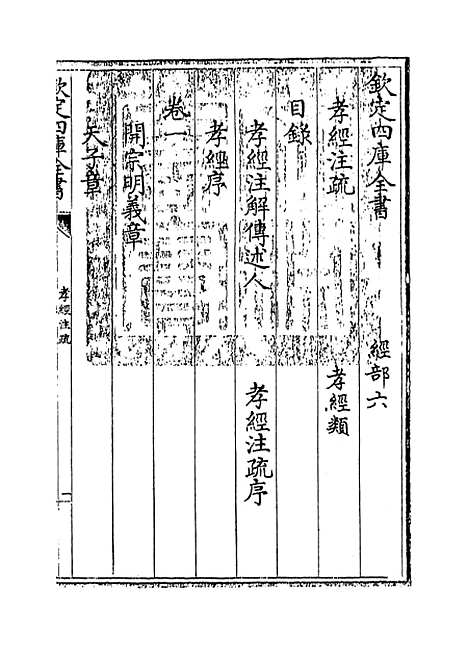 欽定四庫全書　經部六
孝經注疏　孝經類
目錄
孝經注解傳述人　孝經注疏序
孝經序
卷一
開宗明義章
天子章
欽定四庫全書　孝經注疏